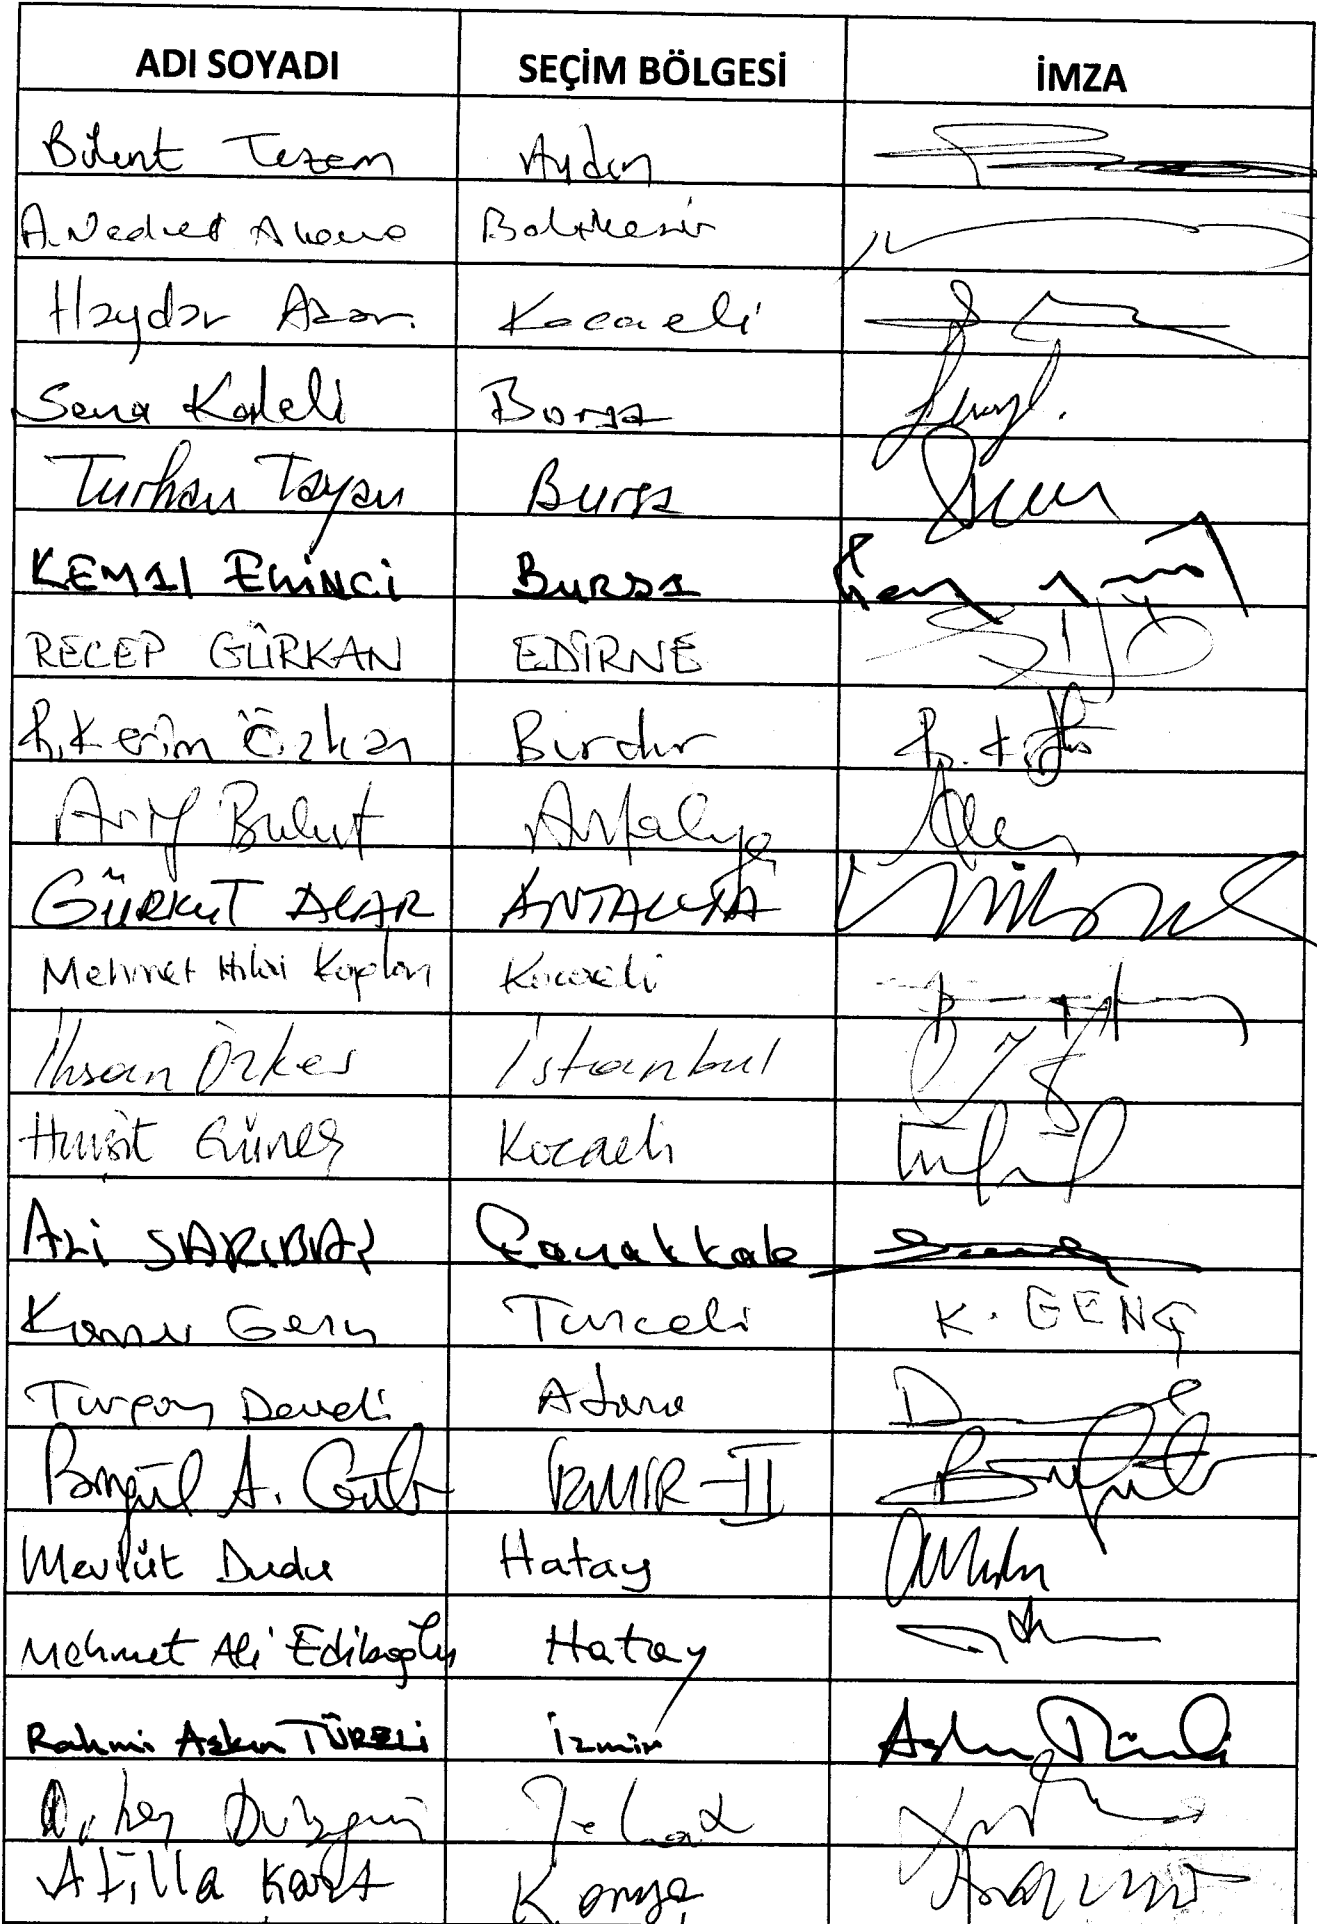 ADI SOYADI SEÇİM BÖLGESİ İMZA
Bülent Tezcan Aydın
A. Nedret Akova Balıkesir
Haydar Akar Kocaeli
Sena Kaleli Bursa
Turhan Tayan Bursa
KEMAl EKİNCİ BURSA
RECEP GÜRKAN EDİRNE
R. Kerim Özkan Burdur
Arif Bulut Antalya
GÜRKUT ACAR ANTALYA
Mehmet Hilal Kaplan Kocaeli
İhsan Özkes İstanbul
Hurşit Güneş Kocaeli
ALİ SARIBAŞ Çanakkale
Kamer Genç Tunceli K. GENÇ
Turgay Develi Adana
Birgül A. Güler İZMİR-II
Mevlüt Dudu Hatay
Mehmet Ali Ediboğlu Hatay
Rahmi Aşkın TÜRELİ İzmir Aşkın Türeli
Düzgün
Atilla Kart Konya